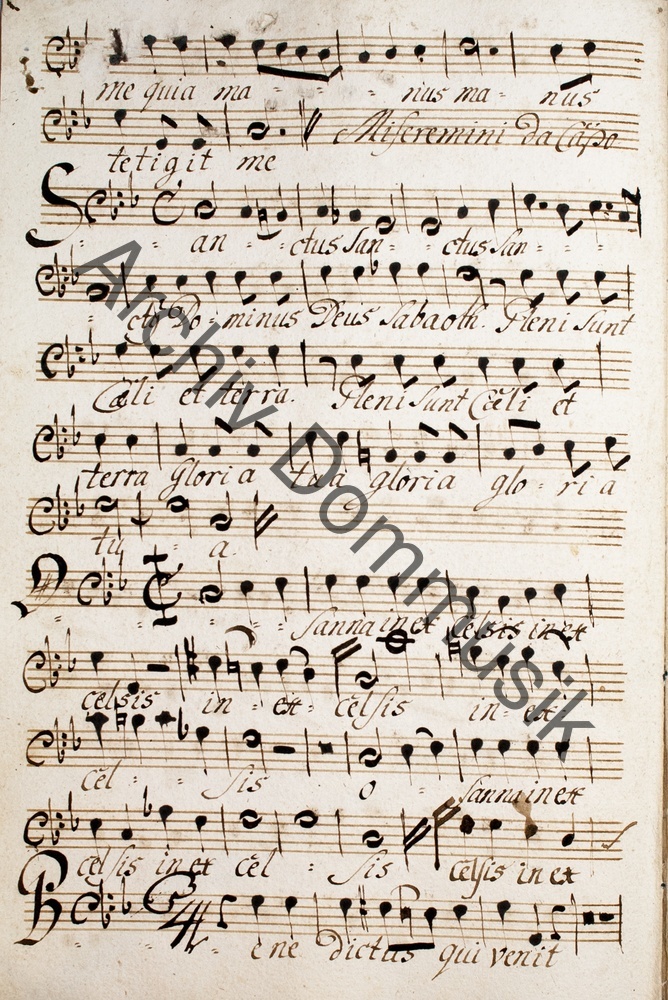 me quia ma - - - nus ma - nus
Miseremini da Capo
tetigit me
San - - ctus San - - ctus San - - -
- ctus Do - minus Deus Sabaoth. Pleni Sunt
Cœli et terra. Pleni Sunt Cœli et
terra Gloria tua gloria glo - ri a
tu - a.
O - - - - sanna in ex celsis in ex
celsis in - ex - celsis in - ex
cel - - sis o - sanna in ex
celsis in ex cel - sis celsis in ex
Be - - - ne dictus qui venit
Archiv Dommusik